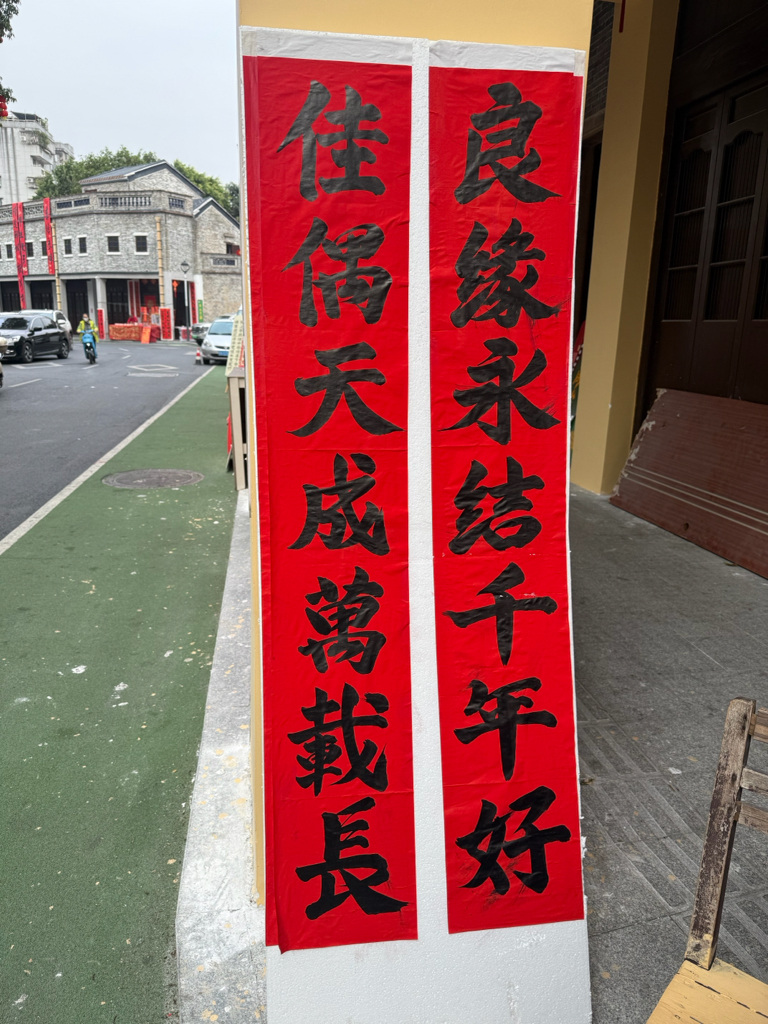 良缘永结千年好
佳偶天成萬載長